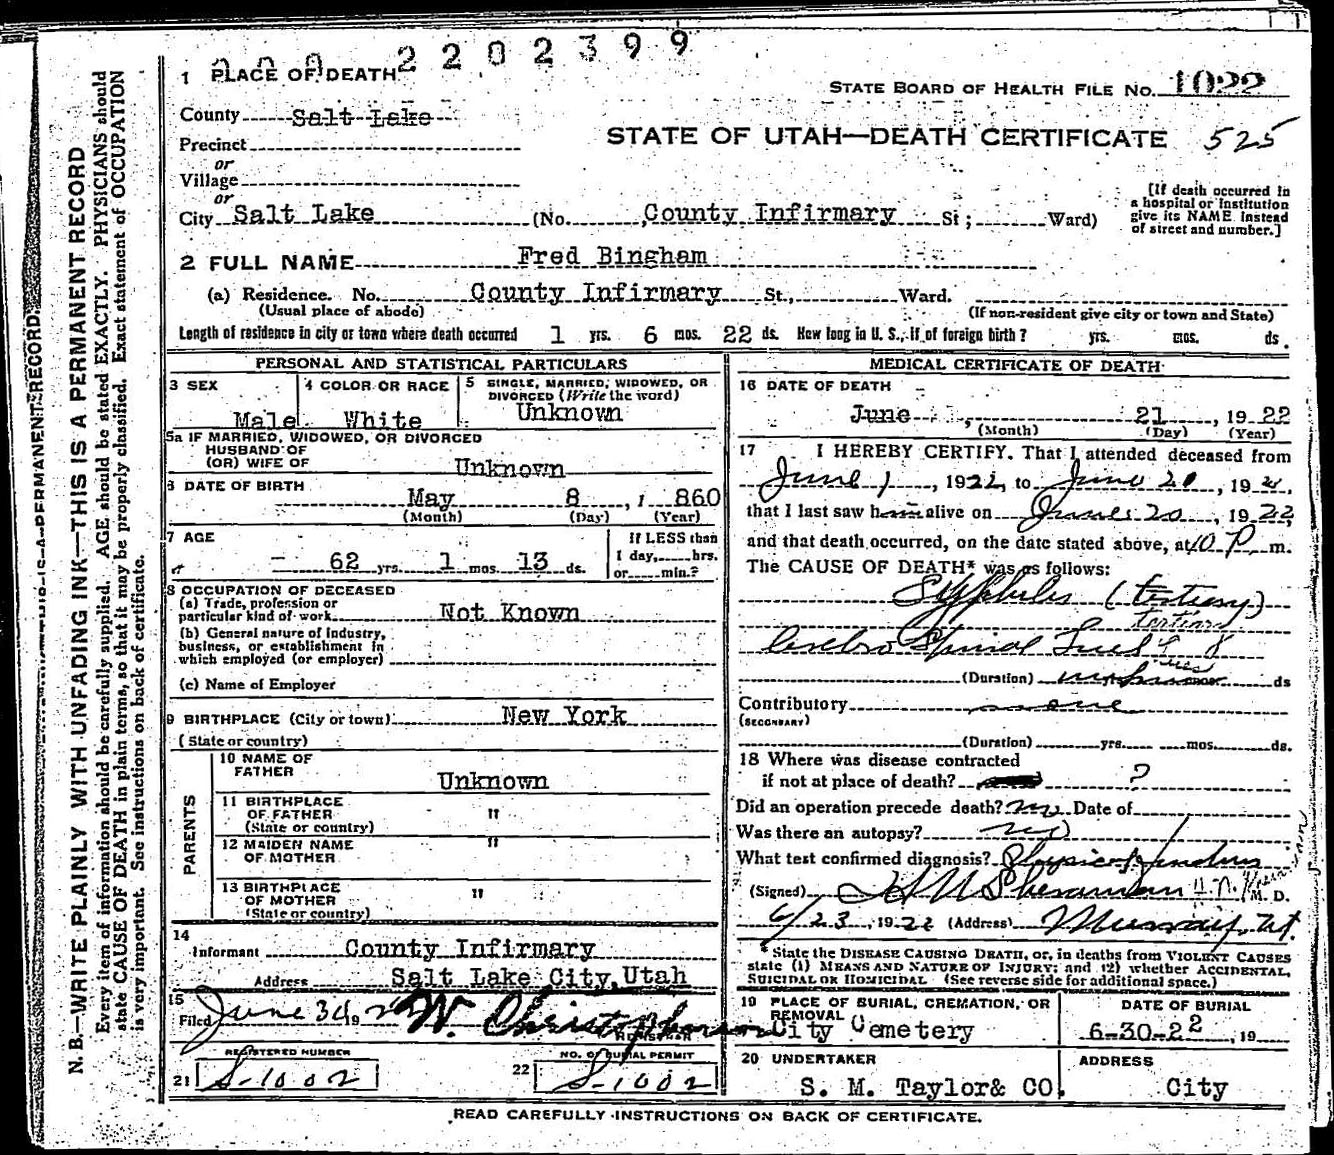 2202399
1 PLACE OF DEATH
STATE BOARD OF HEALTH FILE NO. 1022
County Salt Lake
STATE OF UTAH—DEATH CERTIFICATE 525
Precinct
or
Village
or
City Salt Lake (No. County Infirmary St; Ward)
[If death occurred in
a hospital or institution
give its NAME instead
of street and number.]
2 FULL NAME Fred Bingham
(a) Residence. No. County Infirmary St., Ward.
(Usual place of abode) (If non-resident give city or town and State)
Length of residence in city or town where death occurred 1 yrs. 6 mos. 22 ds. How long in U. S., if of foreign birth? yrs. mos. ds.
PERSONAL AND STATISTICAL PARTICULARS
3 SEX Male
4 COLOR OR RACE White
5 SINGLE, MARRIED, WIDOWED, OR
DIVORCED (Write the word)
Unknown
5a IF MARRIED, WIDOWED, OR DIVORCED
HUSBAND OF
(OR) WIFE OF Unknown
6 DATE OF BIRTH
May 8, 1 860
(Month) (Day) (Year)
7 AGE
62 yrs. 1 mos. 13 ds.
If LESS than
1 day, hrs.
or min.?
8 OCCUPATION OF DECEASED
(a) Trade, profession or
particular kind of work Not Known
(b) General nature of industry,
business, or establishment in
which employed (or employer)
(c) Name of Employer
9 BIRTHPLACE (City or town) New York
(State or country)
PARENTS
10 NAME OF
FATHER Unknown
11 BIRTHPLACE
OF FATHER "
(State or country)
12 MAIDEN NAME
OF MOTHER "
13 BIRTHPLACE
OF MOTHER "
(State or country)
14
Informant County Infirmary
Address Salt Lake City, Utah
15
Filed June 30 192 W. Christopherson
REGISTRAR
REGISTERED NUMBER
21 S-1002
NO. OF BURIAL PERMIT
22 S-1002
MEDICAL CERTIFICATE OF DEATH
16 DATE OF DEATH
June, 21, 1922
(Month) (Day) (Year)
17 I HEREBY CERTIFY, That I attended deceased from
June 1, 1922, to June 20, 192
that I last saw him alive on June 20, 1922
and that death occurred, on the date stated above, at 10 P. m.
The CAUSE OF DEATH* was as follows:
Syphilis (tertiary)
tertiary
Cerebro Spinal Lues
(Duration) mos ds
Contributory none
(SECONDARY)
(Duration) yrs. mos. ds.
18 Where was disease contracted
if not at place of death? ?
Did an operation precede death? no Date of
Was there an autopsy? no
What test confirmed diagnosis? Physical
(Signed) H N Sheranian M. D.
6/23, 1922 (Address) Murray, Ut.
* State the DISEASE CAUSING DEATH, or, in deaths from VIOLENT CAUSES
state (1) MEANS AND NATURE OF INJURY; and (2) whether ACCIDENTAL,
SUICIDAL OR HOMICIDAL (See reverse side for additional space.)
19 PLACE OF BURIAL, CREMATION, OR
REMOVAL
City Cemetery
DATE OF BURIAL
6-30-22, 19
20 UNDERTAKER
S. M. Taylor& CO.
ADDRESS
City
READ CAREFULLY INSTRUCTIONS ON BACK OF CERTIFICATE.
N. B.—WRITE PLAINLY WITH UNFADING INK—THIS IS A PERMANENT RECORD
Every item of information should be carefully supplied. AGE should be stated EXACTLY. PHYSICIANS should
state CAUSE OF DEATH in plain terms, so that it may be properly classified. Exact statement of OCCUPATION
is very important. See instructions on back of certificate.
PERMANENT RECORD